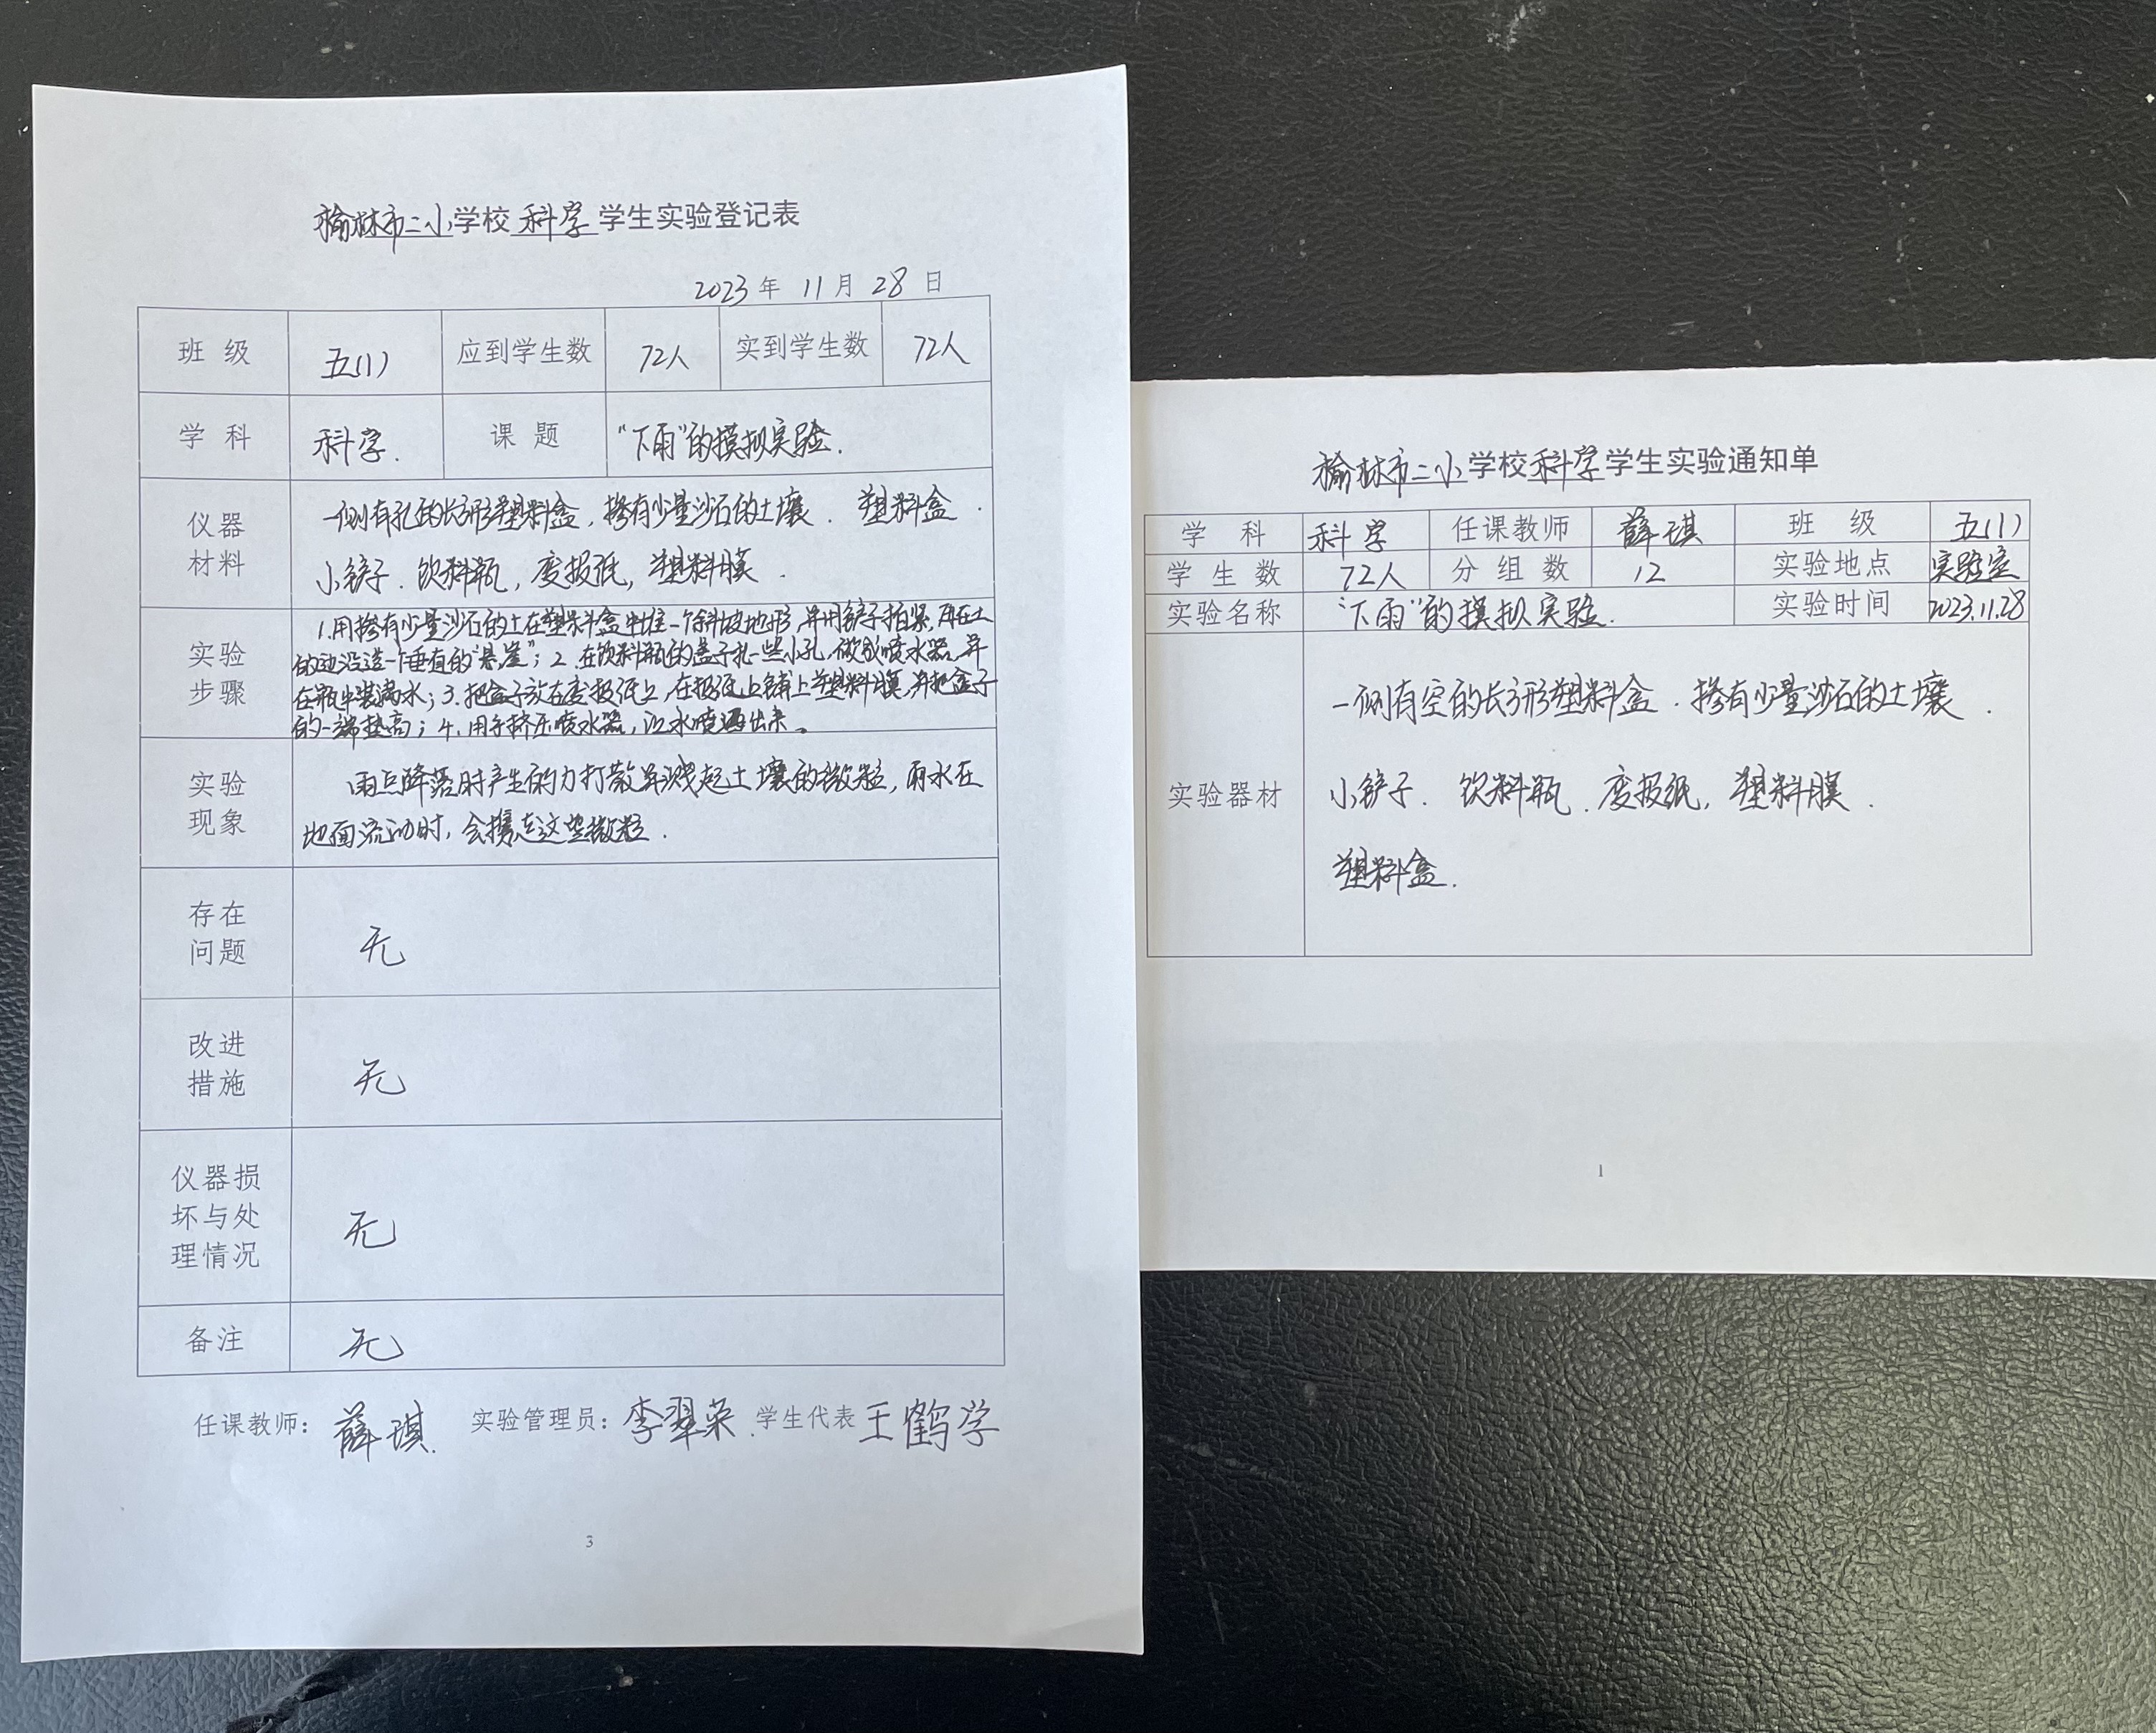 榆林市二小学校科学学生实验登记表
2023年 11月 28日
班级 五(1) 应到学生数 72人 实到学生数 72人
学科 科学. 课题 “下雨”的摸拟实验.
仪器材料
一侧有孔的长方形塑料盒, 掺有少量沙石的土壤. 塑料盒.
小铲子. 饮料瓶, 废报纸, 塑料膜.
实验步骤
1.用掺有少量沙石的土在塑料盒中堆一个斜坡地形,并用铲子拍紧,再在土
的边沿造一个垂直的“悬崖”; 2.在饮料瓶的盖子扎一些小孔,做成喷水器,并
在瓶中装满水; 3.把盒子放在废报纸上,在报纸上铺上塑料膜,并把盒子
的一端垫高; 4.用手挤压喷水器,让水喷洒出来。
实验现象
雨点降落时产生的力打散并溅起土壤的微粒, 雨水在
地面流动时, 会携走这些微粒.
存在问题 无
改进措施 无
仪器损坏与处理情况 无
备注 无
任课教师: 薛琪. 实验管理员: 李翠荣. 学生代表 王鹤学
3
榆林市二小学校科学学生实验通知单
学科 科学 任课教师 薛琪 班级 五(1)
学生数 72人 分组数 12 实验地点 实验室
实验名称 “下雨”的摸拟实验. 实验时间 2023.11.28
实验器材
一侧有空的长方形塑料盒. 掺有少量沙石的土壤.
小铲子. 饮料瓶. 废报纸, 塑料膜.
塑料盒.
1